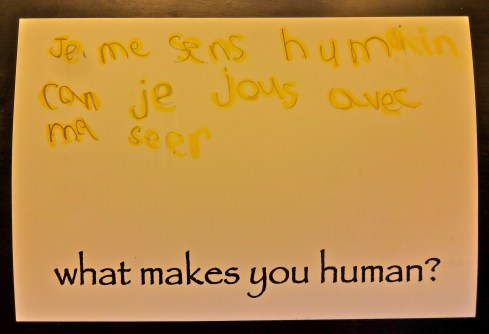 Je me sens humain
can je jous avec
ma seer
what makes you human?